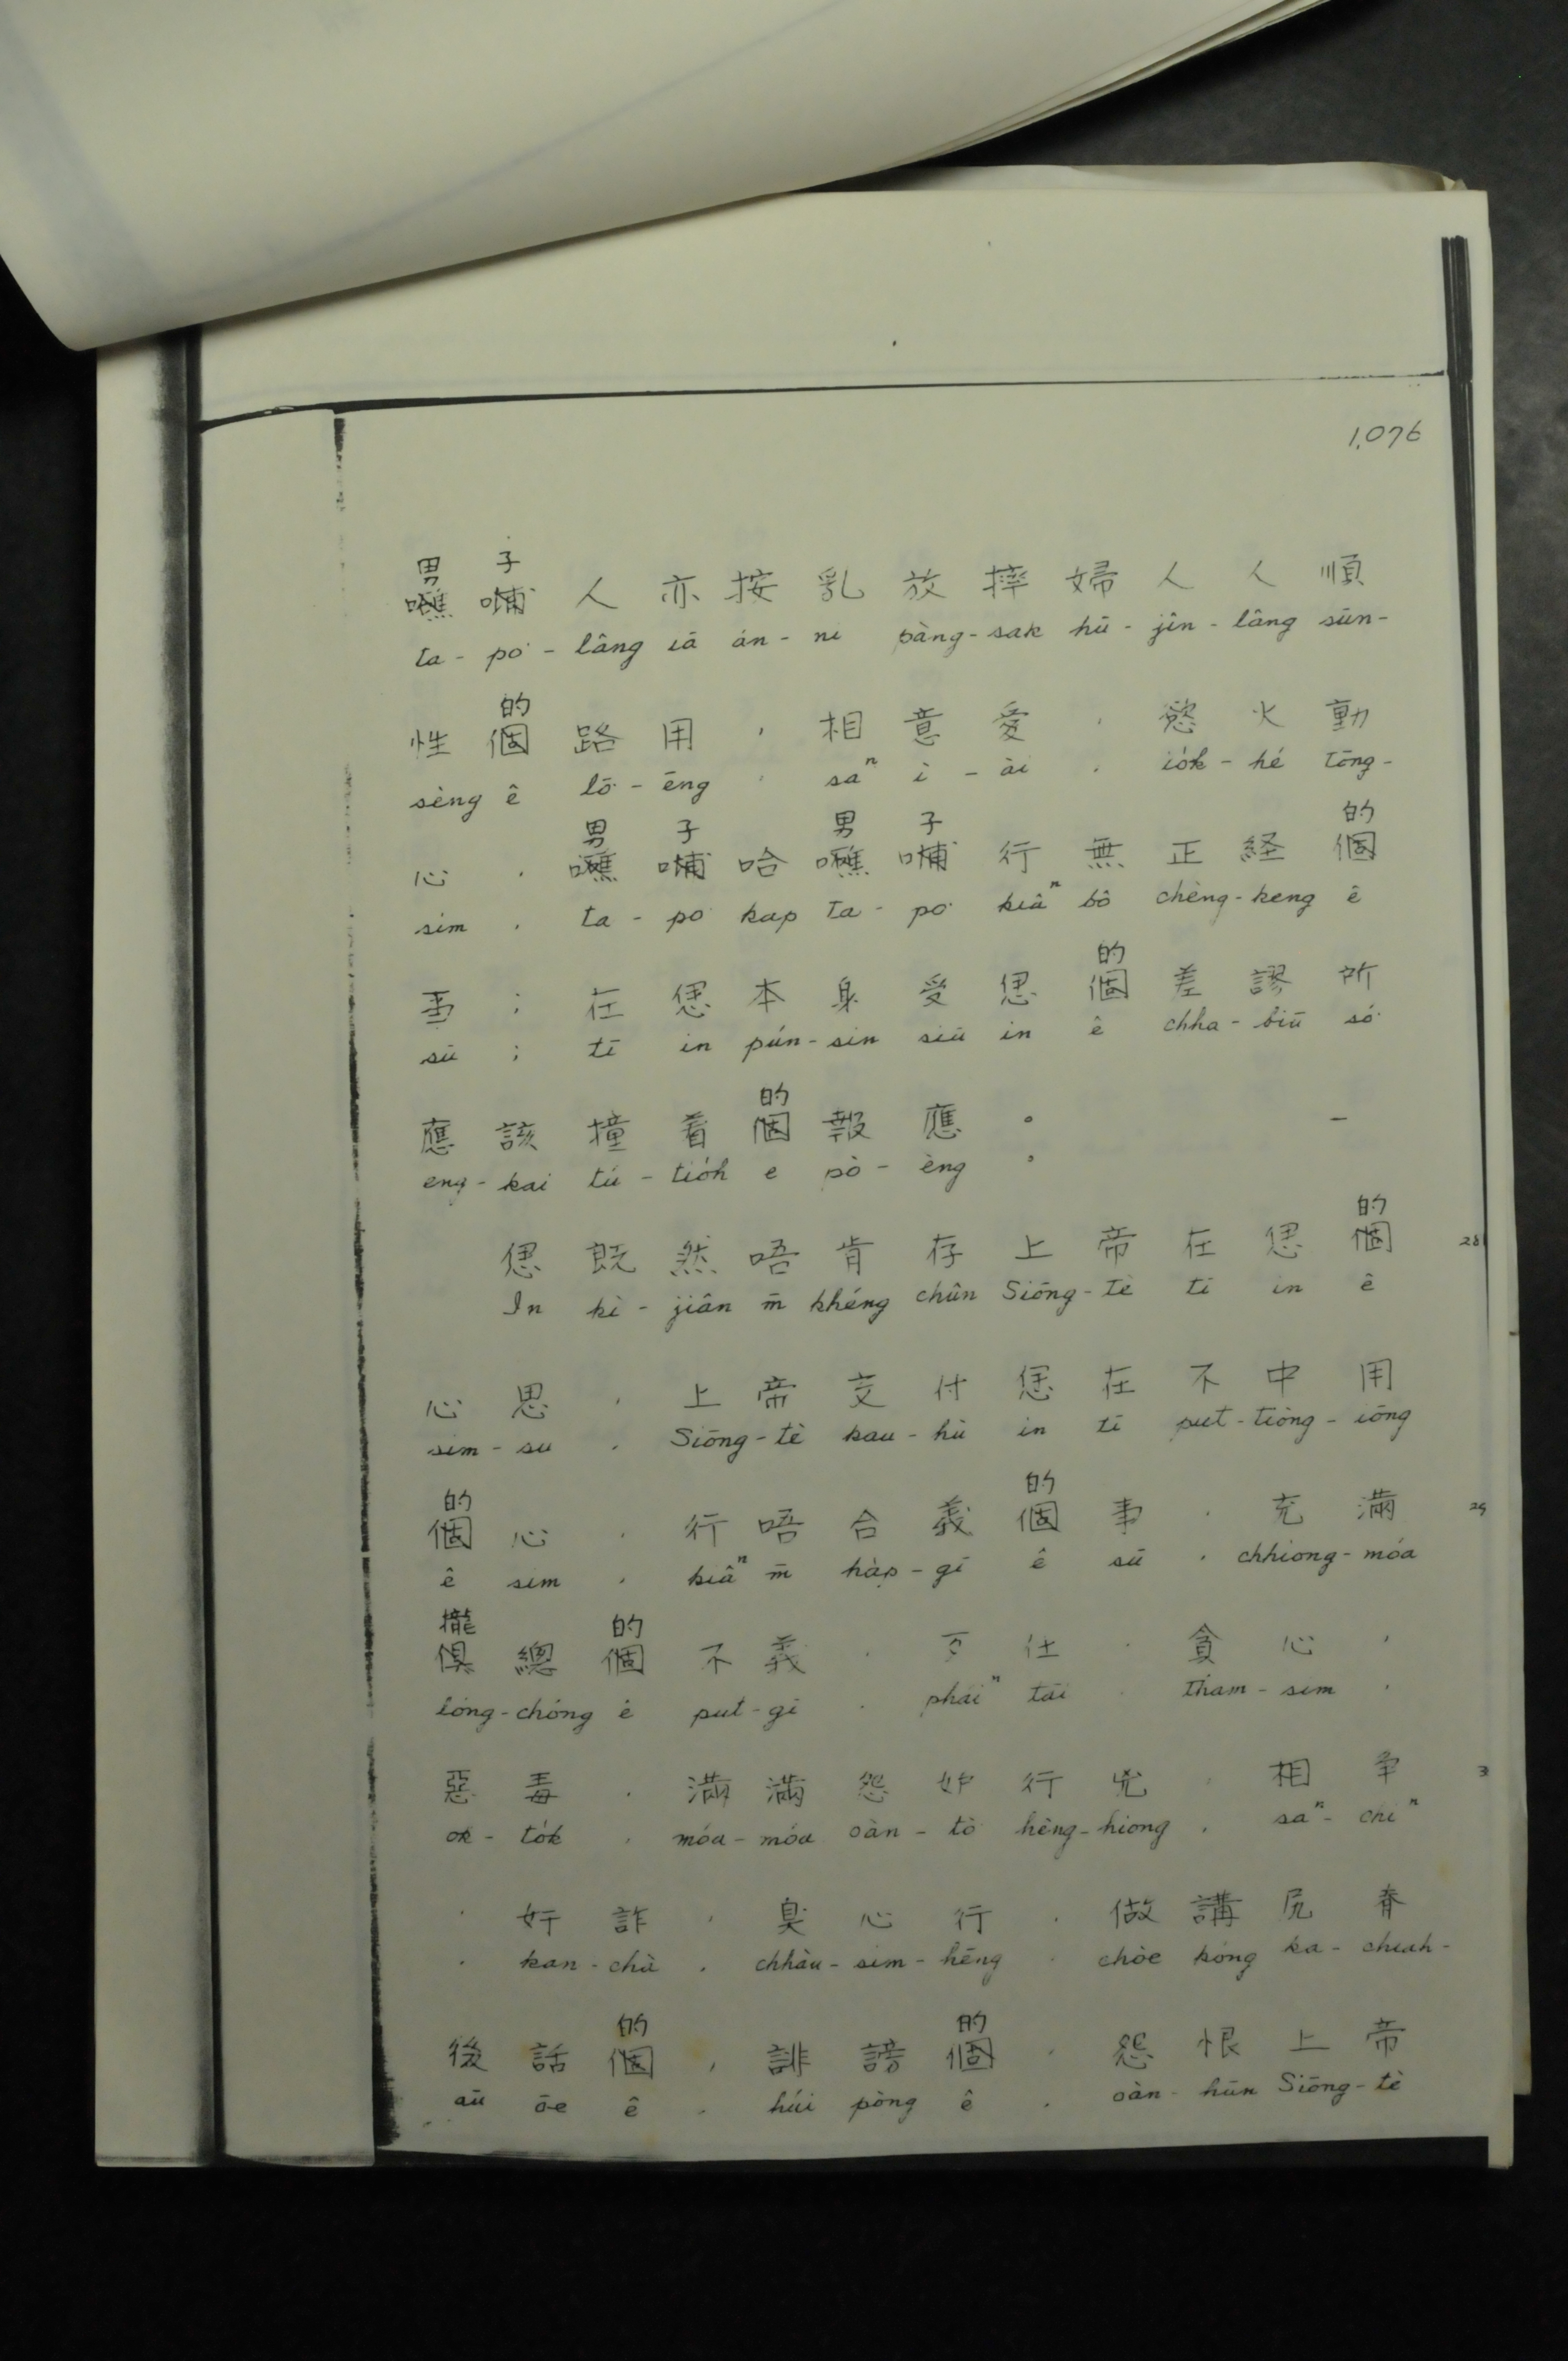 1,076
男 子
噍 哺 人 亦 按 乳 放 摔 婦 人 人 順
ta - po͘ - lâng iā án - ni pàng - sak hū - jîn - lâng sūn -
的
性 個 路 用 , 相 意 愛 , 慾 火 動
sèng ê lō͘ - ēng , saⁿ ì - ài , io̍k - hé tōng -
男 子 男 子 的
心 , 噍 哺 哈 噍 哺 行 無 正 経 個
sim , ta - po͘ kap ta - po͘ kiâⁿ bô chèng - keng ê
的
事 ; 在 𪜶 本 身 受 𪜶 個 差 謬 所
sū ; tī in pún - sin siū in ê chha - biū só͘
的
應 該 撞 着 個 報 應 。 –
eng - kai tú - tio̍h e pò - èng 。
的
𪜶 既 然 唔 肯 存 上 帝 在 𪜶 個 28
In kì - jiân m̄ khéng chûn Siōng - tè tī in ê
心 思 , 上 帝 交 付 𪜶 在 不 中 用
sim - su , Siōng - tè kau - hù in tī put - tiòng - iōng
的 的
個 心 , 行 唔 合 義 個 事 , 充 滿 29
ê sim , kiâⁿ m̄ ha̍p - gī ê sū , chhiong - móa
攏 的
俱 總 個 不 義 , 歹 仕 , 貪 心 ,
lóng - chóng ê put - gī , pháiⁿ tāi , tham - sim ,
惡 毒 , 滿 滿 怨 妒 行 兇 , 相 争 3
ok - to̍k , móa - móa oàn - tò͘ hêng - hiong , saⁿ - chiⁿ
, 奸 詐 , 臭 心 行 , 做 講 尻 脊
, kan - chà , chhàu - sim - hēng , chòe kóng ka - chiah -
的 的
後 話 個 , 誹 謗 個 , 怨 恨 上 帝
aū ōe ê , húi pòng ê , oàn - hūn Siōng - tè